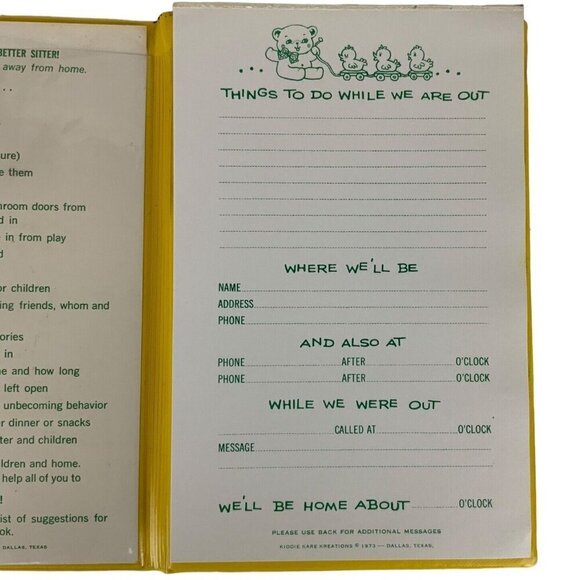 BETTER SITTER!
away from home.
...
ure)
e them
hroom doors from
d in
in from play
d
or children
ing friends, whom and
ories
in
ne and how long
left open
unbecoming behavior
r dinner or snacks
ter and children
ildren and home.
help all of you to
!
ist of suggestions for
ok.
DALLAS, TEXAS
THINGS TO DO WHILE WE ARE OUT
WHERE WE'LL BE
NAME
ADDRESS
PHONE
AND ALSO AT
PHONE AFTER O'CLOCK
PHONE AFTER O'CLOCK
WHILE WE WERE OUT
CALLED AT O'CLOCK
MESSAGE
WE'LL BE HOME ABOUT O'CLOCK
PLEASE USE BACK FOR ADDITIONAL MESSAGES
KIDDIE KARE KREATIONS © 1973 — DALLAS, TEXAS,